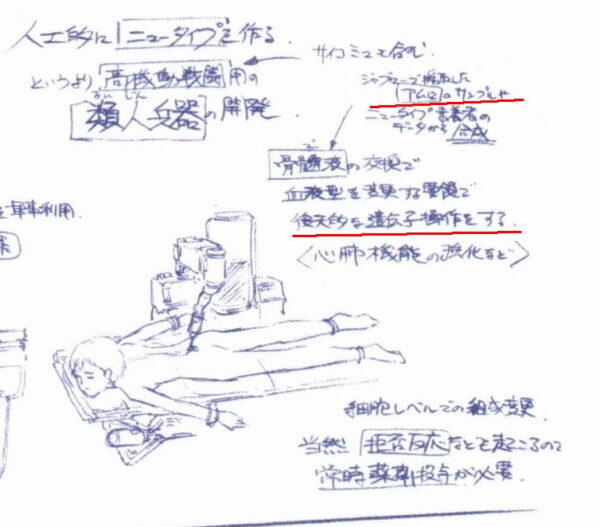 人工的にニュータイプを作る.
サイコミュも含む
というより,高機動戦闘用の
るいじん
類人兵器の開発.
ジャブローで採取した
「アムロ」のサンプルや
ニュータイプ素養者の
データから合成
骨髄液の交換で
血液型を変更する要領で
後天的な遺伝子操作をする.
〈心肺機能の強化など〉
軍事利用.
細胞レベルでの組成変異.
当然拒否反応なども起こるので
常時薬剤投与が必要.